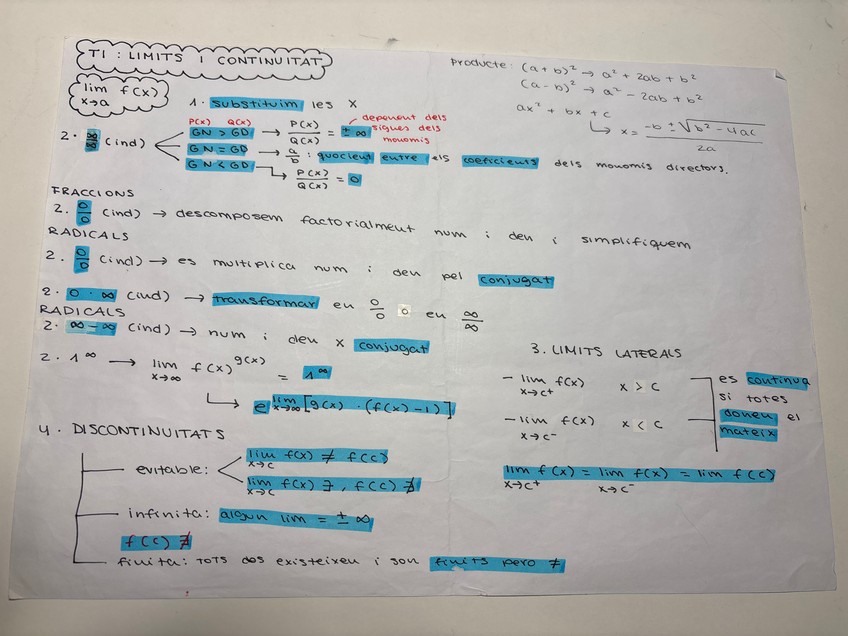 T1: LIMITS I CONTINUITAT
lim f(x)
x→a
1. substituim les x
Producte: (a+b)² → a² + 2ab + b²
(a-b)² → a² - 2ab + b²
ax² + bx + c
↳ x = -b ± √(b² - 4ac) / 2a
2. ∞/∞ (ind)
P(x) Q(x)
GN > GD → P(x)/Q(x) = ± ∞ → depenent dels signes dels monomis
GN = GD → a/b : quocient entre els coeficients dels monomis directors.
GN < GD → P(x)/Q(x) = 0
FRACCIONS
2. 0/0 (ind) → descomposem factorialment num i den i simplifiquem
RADICALS
2. 0/0 (ind) → es multiplica num i den pel conjugat
2. 0 · ∞ (ind) → transformar en 0/0 o en ∞/∞
RADICALS
2. ∞-∞ (ind) → num i den x conjugat
2. 1^∞ → lim x→∞ f(x)^g(x) = 1^∞
↳ e^lim x→∞ [g(x) · (f(x)-1)]
3. LIMITS LATERALS
- lim x→c⁺ f(x) x > c
- lim x→c⁻ f(x) x < c
es continua
si totes
donen el
mateix
lim x→c⁺ f(x) = lim x→c⁻ f(x) = lim f(c)
4. DISCONTINUITATS
evitable:
lim x→c f(x) ≠ f(c)
lim x→c f(x) ∃, f(c) ∄
infinita: algun lim = ± ∞
f(c) ∄
finita: TOTS dos existeixen i son finits pero ≠